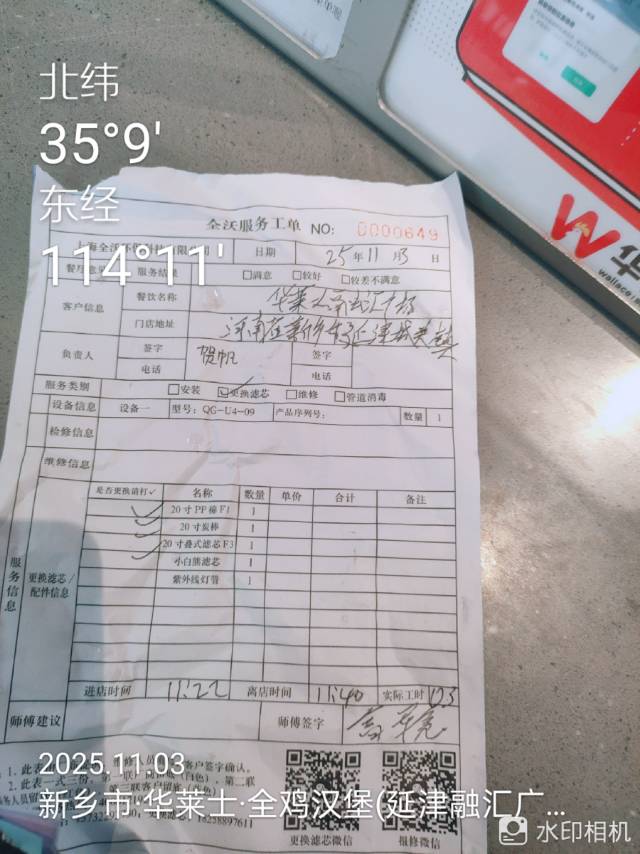 北纬
35°9'
东经
114°11'
全沃服务工单 NO: 0000649
日期 25年11月3日
服务结果 □满意 □较好 □较差不满意
客户信息 餐饮名称
门店地址
负责人 签字 贺帆 签字
电话 电话
服务类别 □安装 ☑更换滤芯 □维修 □管道消毒
设备信息 设备一 型号: QG-U4-09 产品序列号: 数量 1
检修信息
维修信息
服务信息
更换滤芯/配件信息
是否更换请打✓ 名称 数量 单价 合计 备注
✓ 20寸PP棉F1 1
✓ 20寸炭棒 1
✓ 20寸叠式滤芯F3 1
小白熊滤芯 1
紫外线灯管 1
进店时间 11:22 离店时间 11:40 实际工时
师傅建议 师傅签字
2025.11.03
新乡市·华莱士·全鸡汉堡(延津融汇广...
更换滤芯微信 报修微信
水印相机